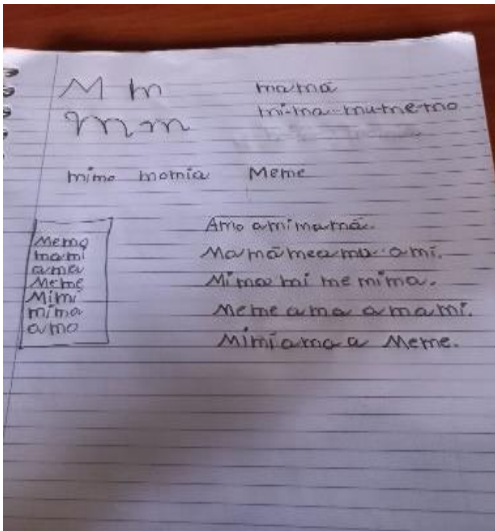 M m
mamá
mi-ma-mu-me-mo
M m
mimo momia Meme
Memo
mami
ama
Meme
Mimí
mima
amo
Amo a mi mamá.
Mamá me ama a mí.
Mima mi me mima.
Meme ama a mami.
Mimí ama a Meme.